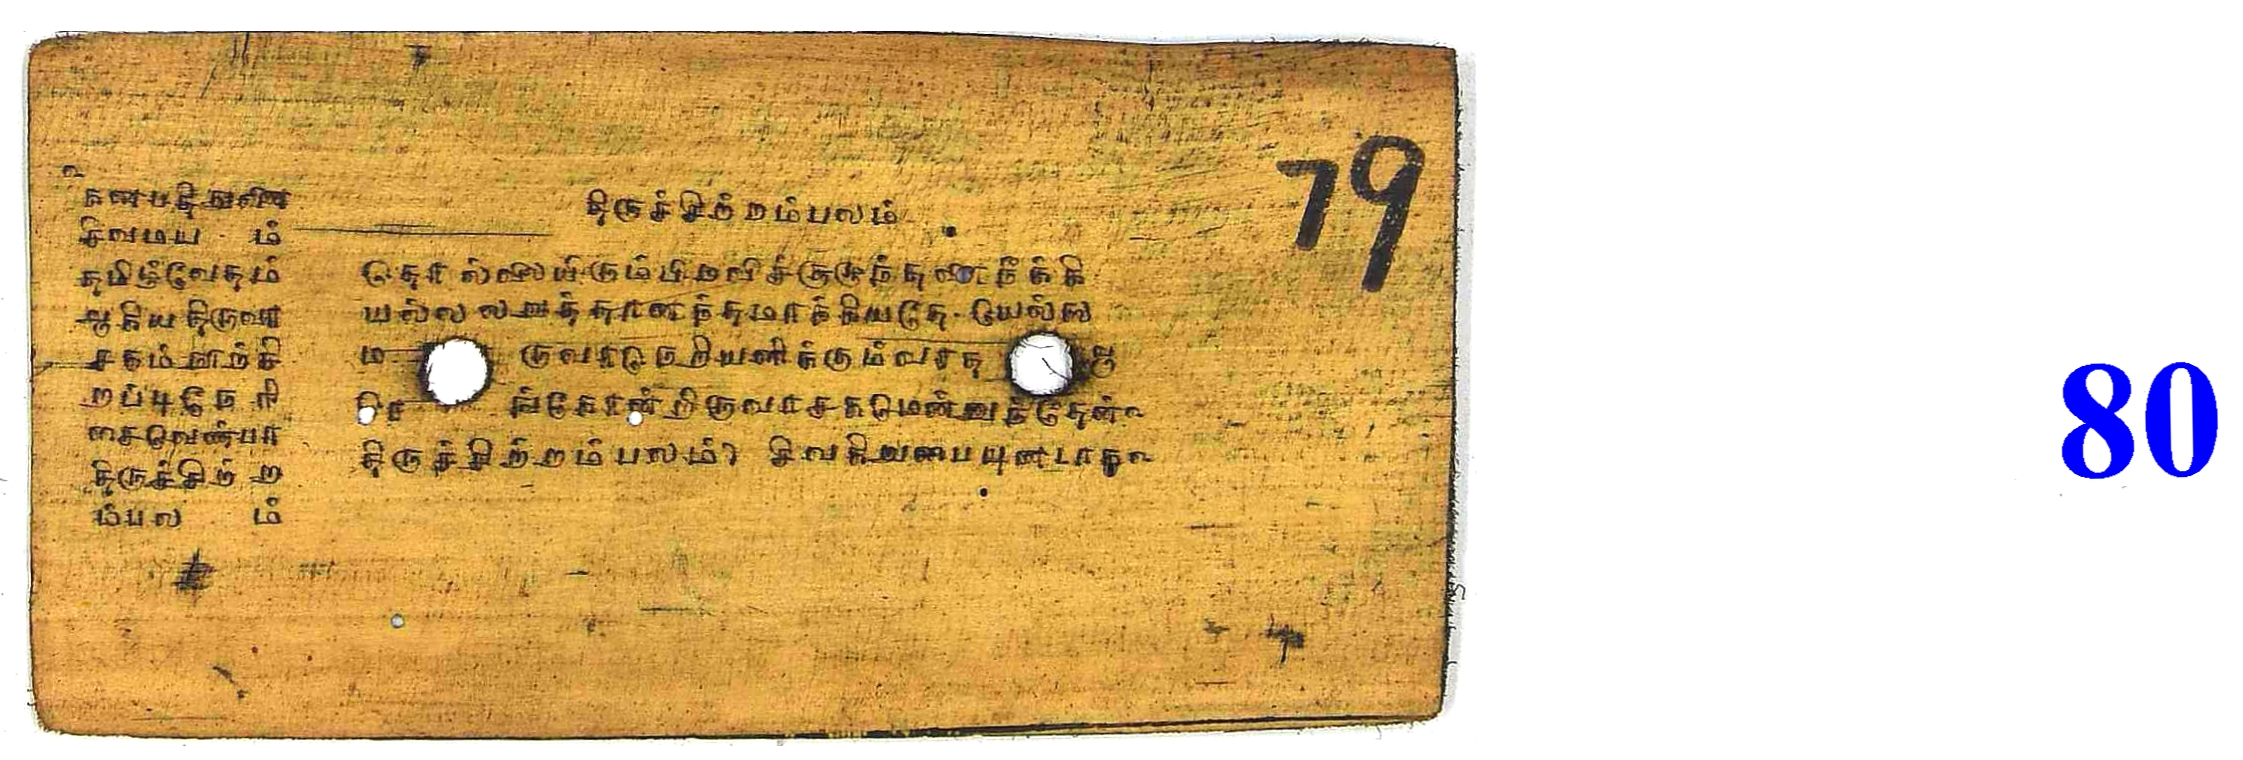 ௨
கணபதிதுணை
சிவமய ம்
தமிழ்வேதம்
ஆகியதிருவா
சகம் னூற்சி
றப்பு நேரி
சைவெண்பா
திருச்சிற்ற
ம்பல ம்
திருச்சிற்றம்பலம்
தொல்லையிரும்பிறவிச்சூழுந்தளை நீக்கி
யல்லலறுத்தானந்தமாக்கியதே யெல்லை
ம ருவாநெறியளிக்கும்வாத வூ
ரெ ங்கோன்றிருவாசகமென்னுந்தேன்௨
திருச்சிற்றம்பலம் சிவகிறுபையுண்டாகு௨
79
80